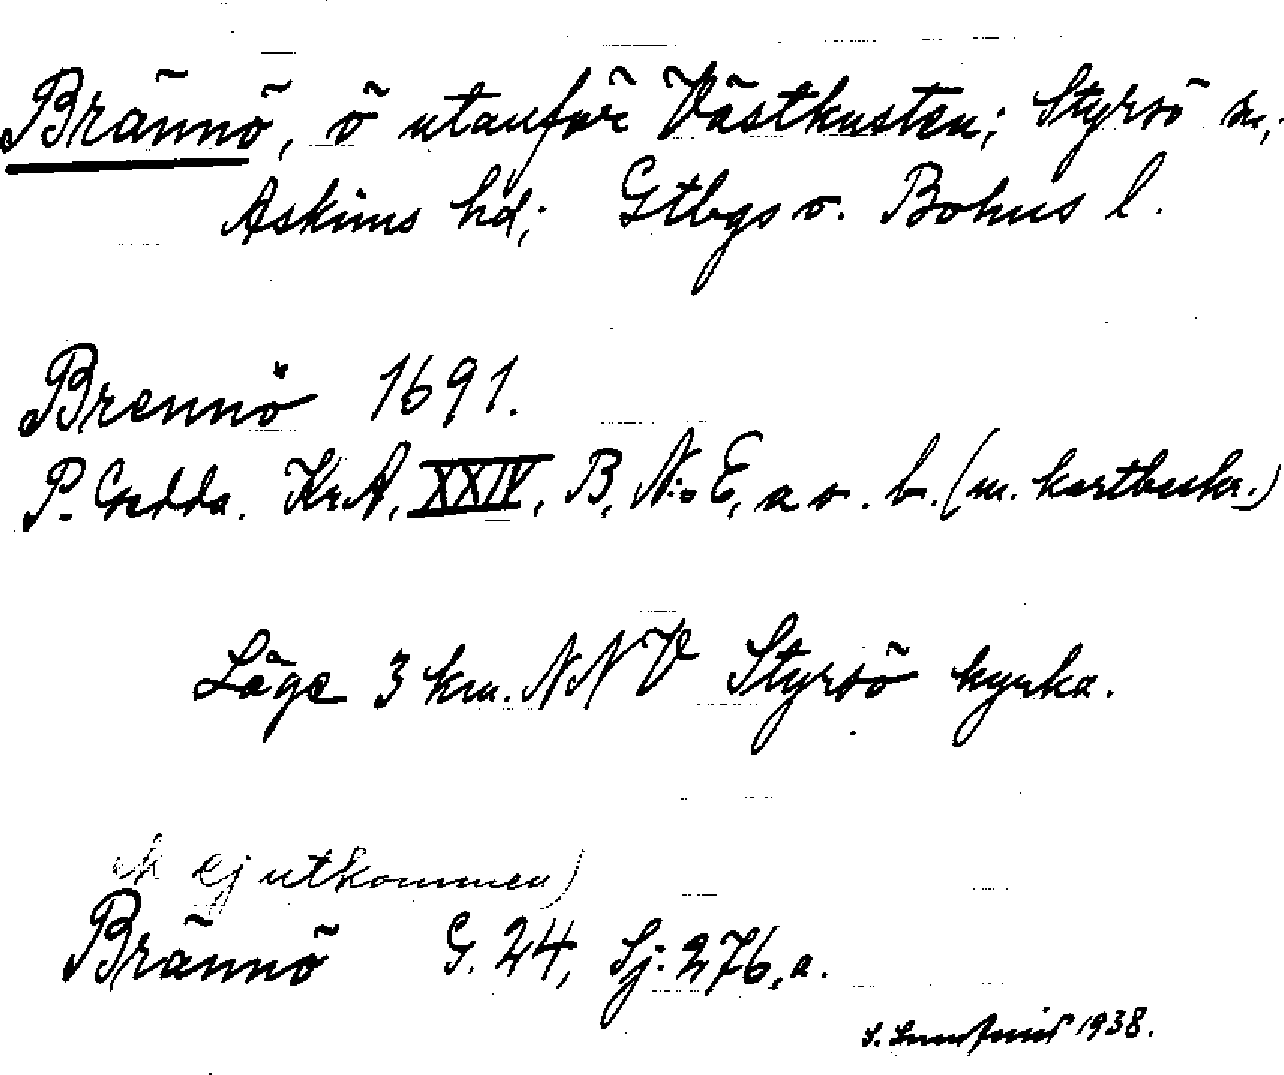 Brännö, ö utanför Västkusten; Styrsö sn,;
Askims hd; Gtbgs o. Bohus l.
Brennö 1691.
P. Gedda. Kr.A, XXIV, B, N:o E, a o. b. (m. kartbeskr.)
Läge 3 km. NNV Styrsö kyrka.
ej utkommen)
Brännö G. 24, Sj. 276, a.
S. 1938.